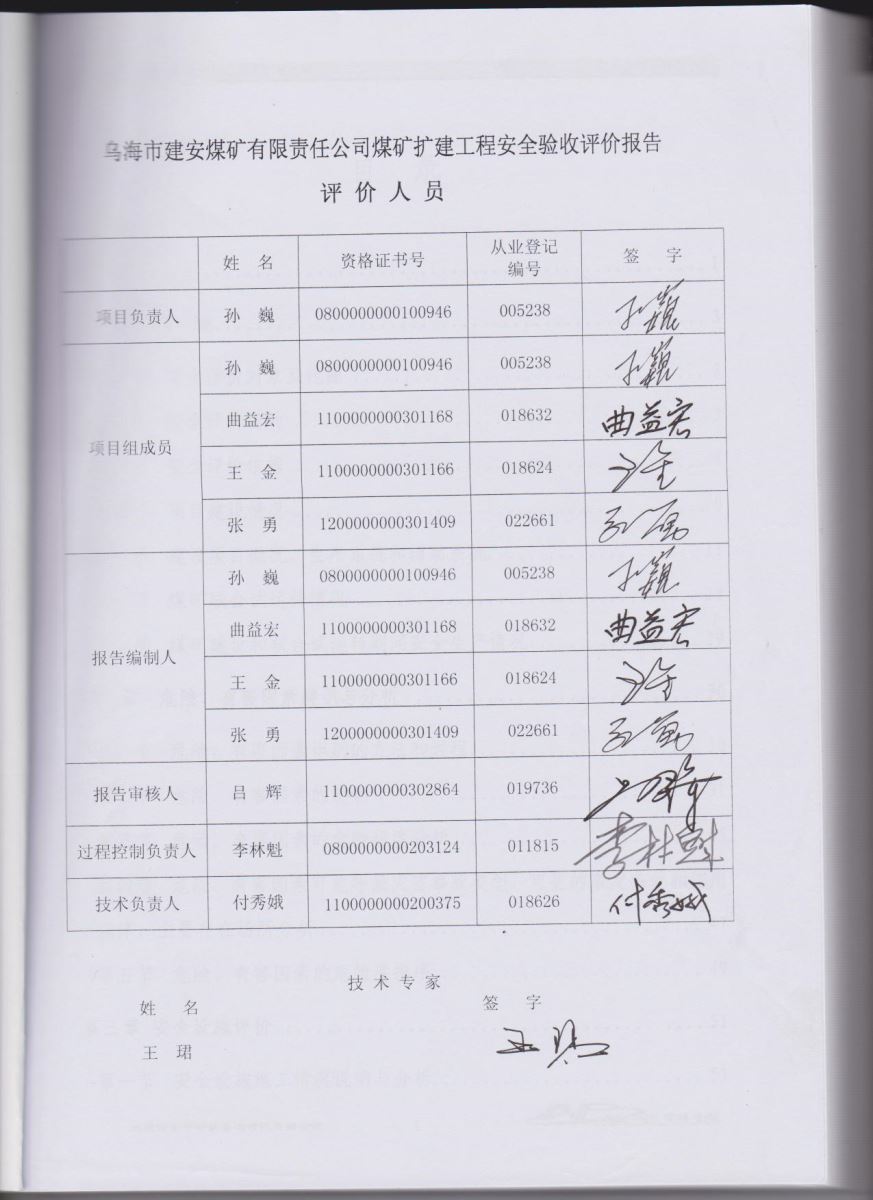 乌海市建安煤矿有限责任公司煤矿扩建工程安全验收评价报告
评价人员
姓 名 资格证书号 从业登记编号 签 字
项目负责人 孙 巍 0800000000100946 005238 孙巍
项目组成员 孙 巍 0800000000100946 005238 孙巍
曲益宏 1100000000301168 018632 曲益宏
王 金 1100000000301166 018624
张 勇 1200000000301409 022661
报告编制人 孙 巍 0800000000100946 005238 孙巍
曲益宏 1100000000301168 018632 曲益宏
王 金 1100000000301166 018624
张 勇 1200000000301409 022661
报告审核人 吕 辉 1100000000302864 019736
过程控制负责人 李林魁 0800000000203124 011815 李林魁
技术负责人 付秀娥 1100000000200375 018626 付秀娥
技术专家
姓 名 签 字
王 珺